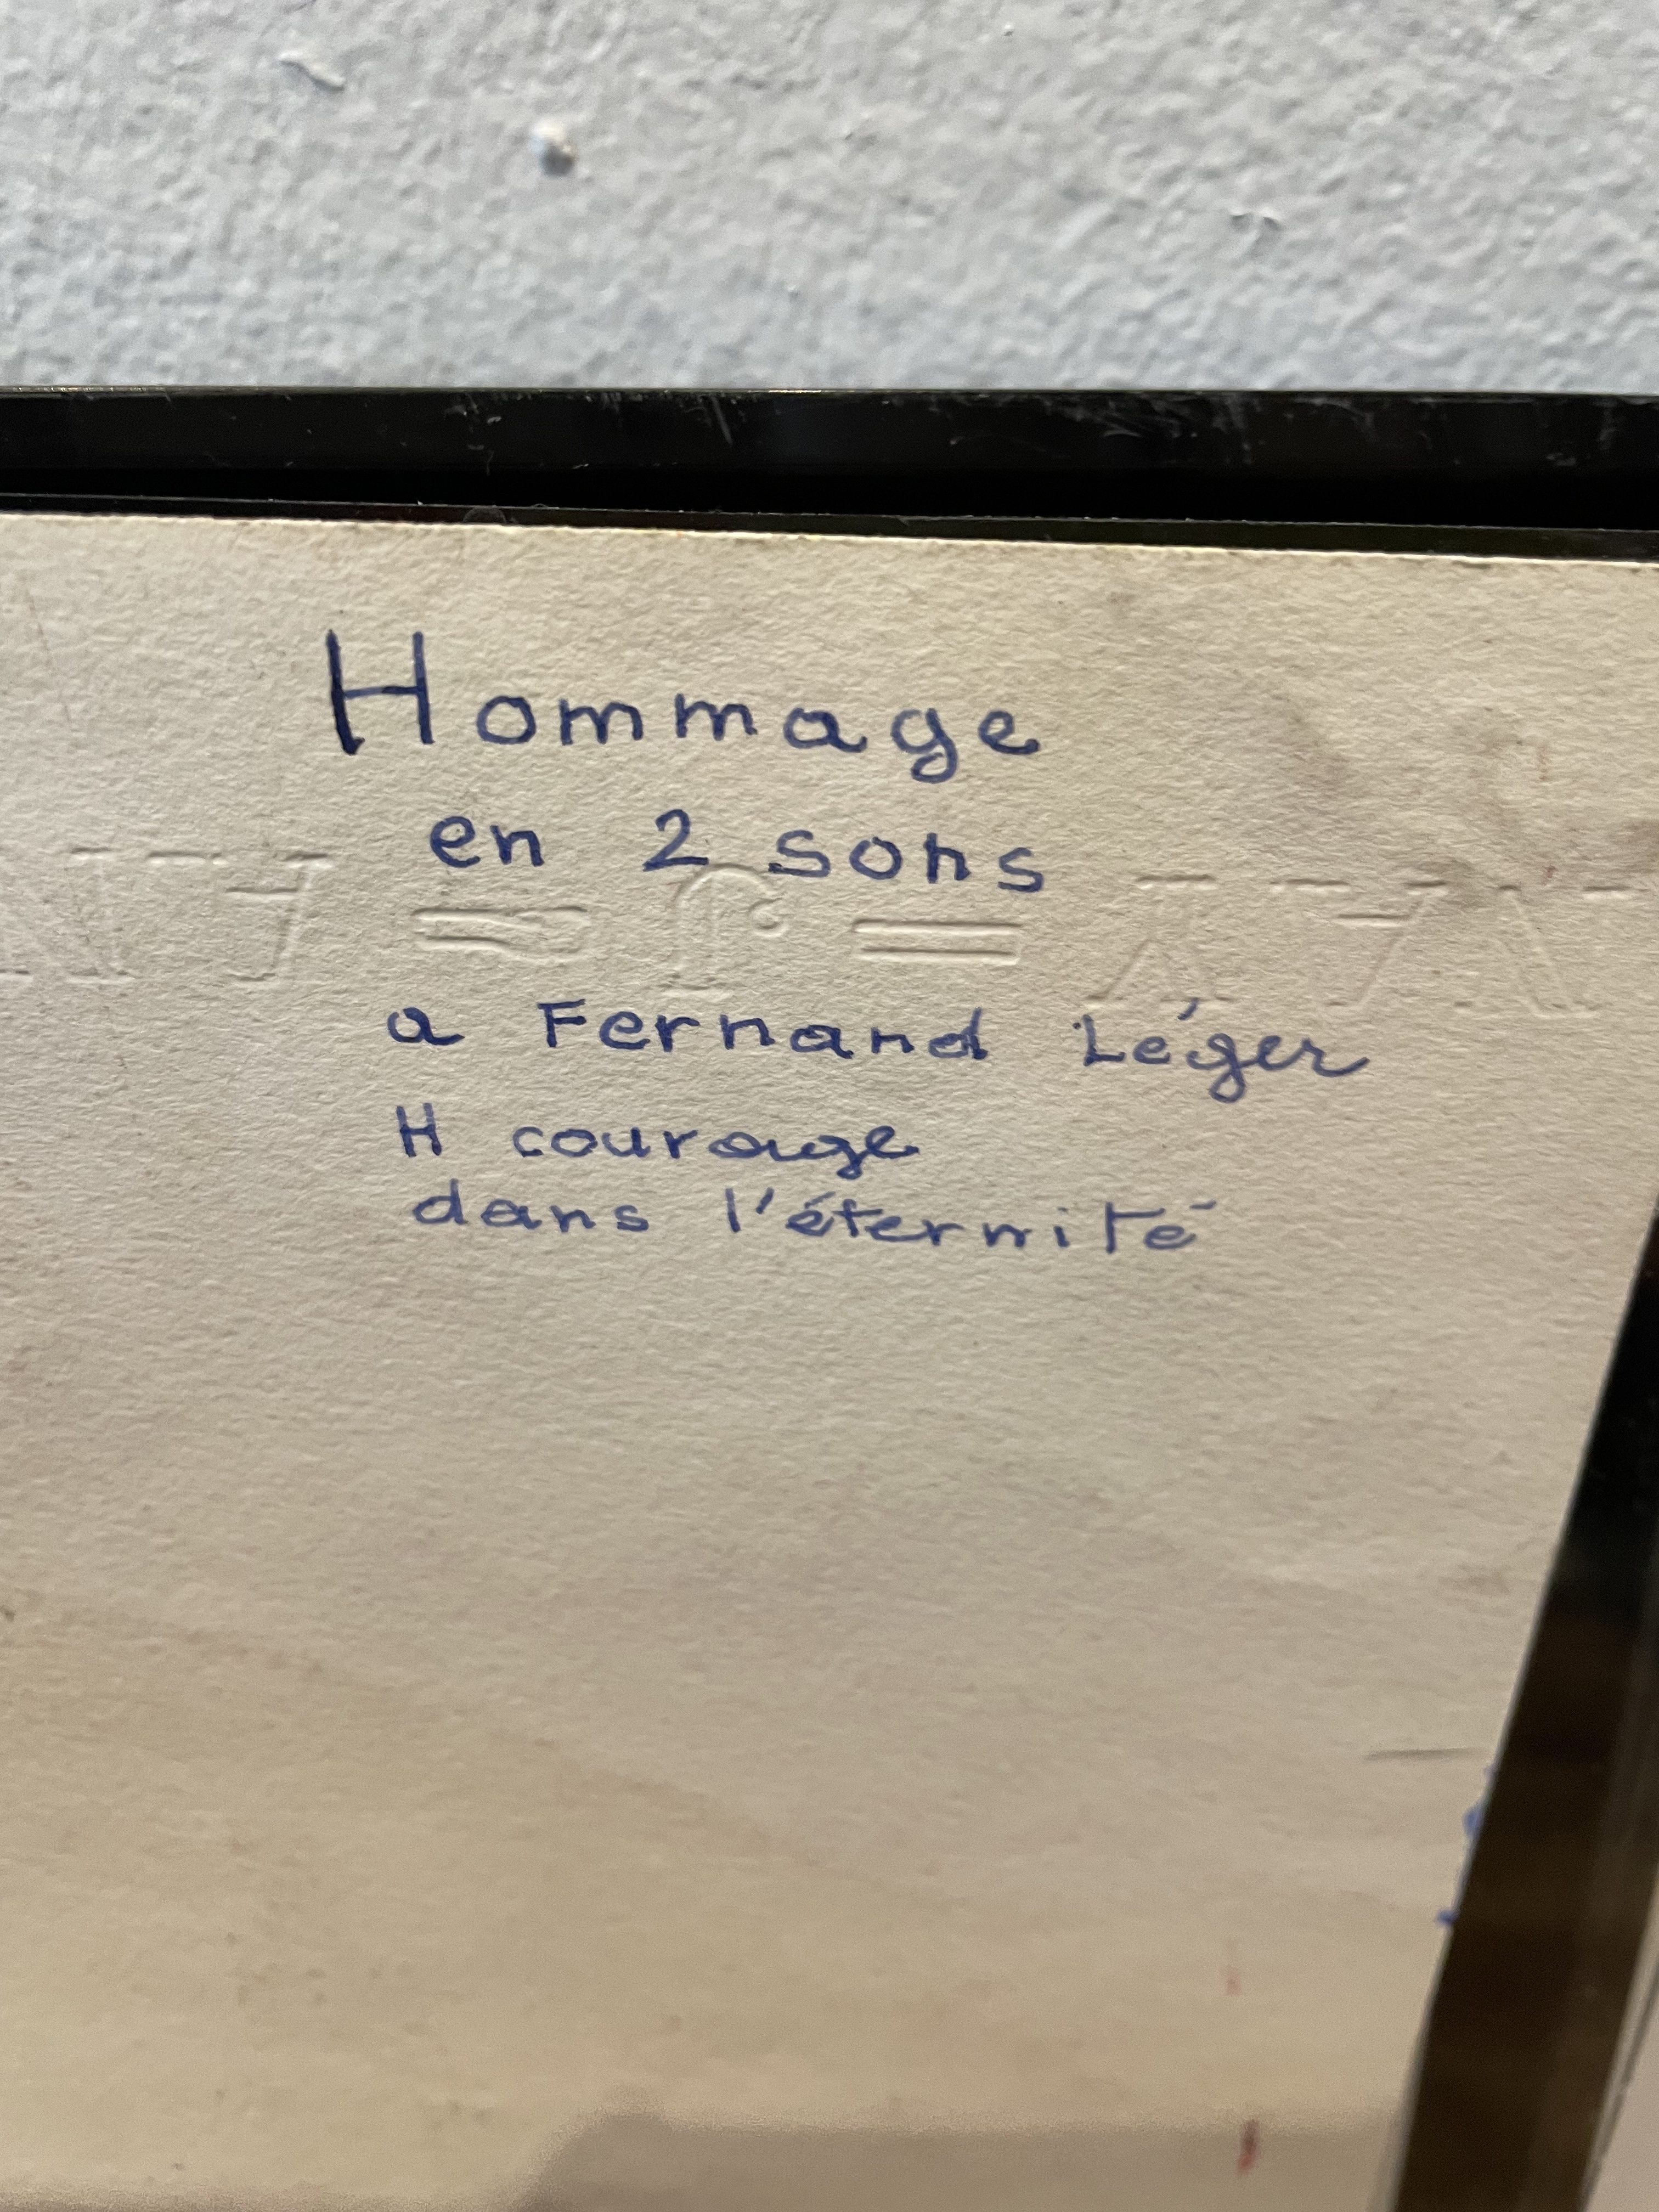 Hommage
en 2 sons
a Fernand Léger
H courage
dans l'éternité